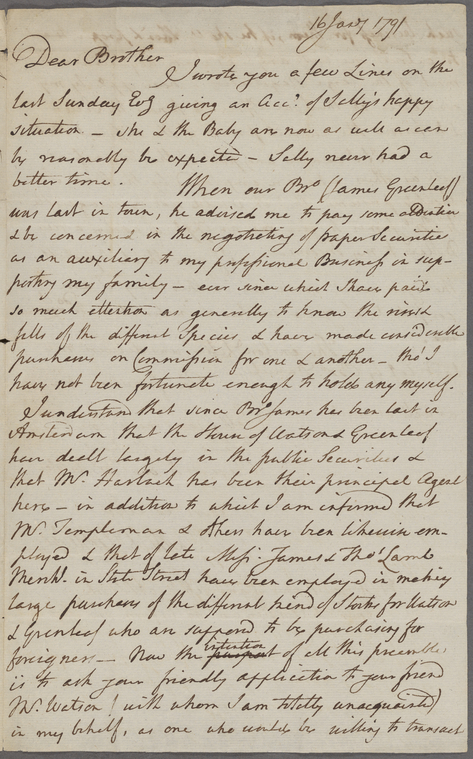 16 Jany 1791
Dear Brother
I wrote you a few Lines on the
last Sunday Evg giving an Acct. of Sally's happy
situation – she & the Baby are now as well as can
by reasonably be expected – Sally never had a
better time. When our Bro. (James Greenleaf)
was last in town, he advised me to pay some attention
& be concerned in the negotiating of paper Securities
as an auxiliary to my professional Business in sup-
porting my family – ever since which I have paid
so much attention as generally to know the rises &
falls of the different Species & have made considerable
purchases on Commission for one & another – tho' I
have not been fortunate enough to hold any myself.
I understand that since Bro. James has been last in
Amsterdam that the House of Watson & Greenleaf
have dealt largely in the public Securities &
that Mr. has been their principal Agent
here – in addition to which I am informed that
Mr. Templeman & others have been likewise em-
ployed & that of late Messr. James & Thos. Lamb
Merchts. in State Street have been employed in making
large purchases of the different kind of Stocks for Watson
& Greenleaf who are supposed to be purchasing for
foreigners – Now the intention of all this preamble,
is to ask your friendly application to your friend
Mr. Watson (with whom I am totally unacquainted)
in my behalf, as one who would be willing to transact